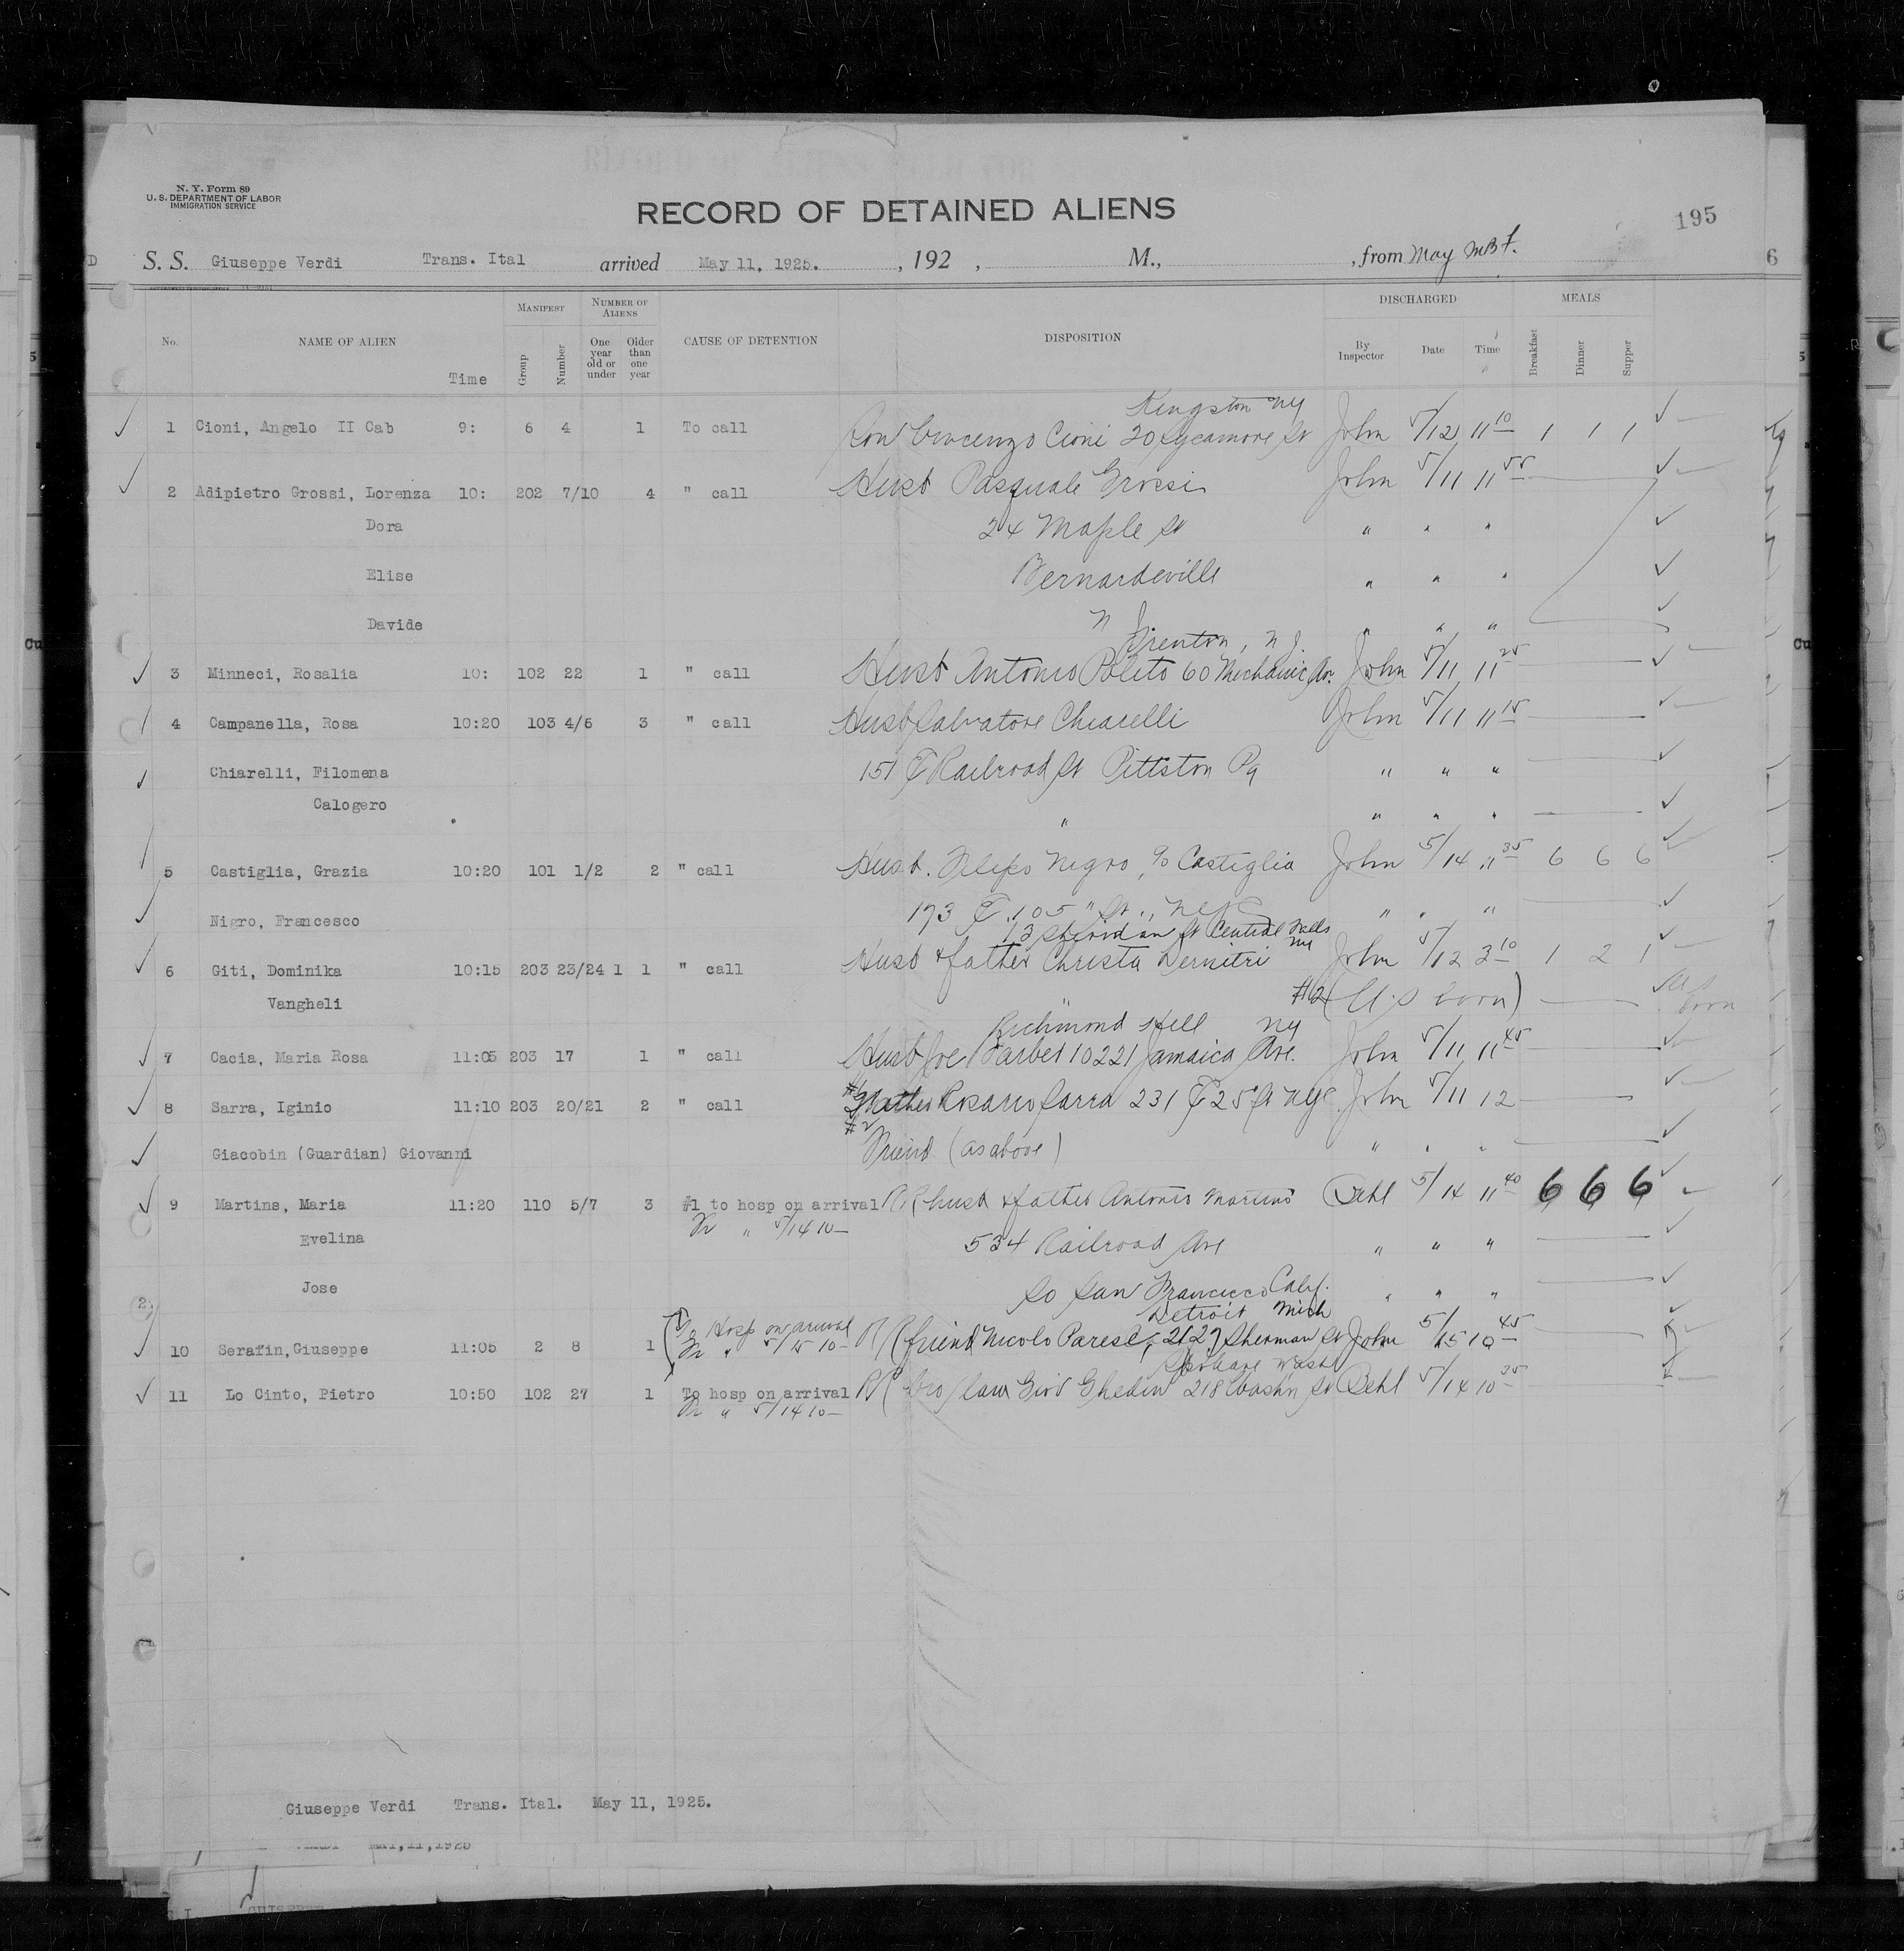 N. Y. Form 89
U. S. DEPARTMENT OF LABOR
IMMIGRATION SERVICE
RECORD OF DETAINED ALIENS
195
S. S. Giuseppe Verdi Trans. Ital arrived May 11, 1925. , 192 , M., , from May
No. NAME OF ALIEN Time MANIFEST Group Number NUMBER OF ALIENS One year old or under Older than one year CAUSE OF DETENTION DISPOSITION DISCHARGED By Inspector Date Time MEALS Breakfast Dinner Supper
Kingston NY
1 Cioni, Angelo II Cab 9: 6 4 1 To call Vincenzo Cioni 20 Sycamore St John 5/12 11 10 1 1 1
2 Adipietro Grossi, Lorenza 10: 202 7/10 4 " call Husb Pasquale Grossi John 5/11 11 55
Dora 24 Maple St " " "
Elise Bernardsville " " "
Davide N J " " "
Trenton, N J.
3 Minneci, Rosalia 10: 102 22 1 " call Husb Antonio Polito 60 Mechanic Av. John 5/11 11 25
4 Campanella, Rosa 10:20 103 4/6 3 " call Husb Salvatore Chiarelli John 5/11 11 15
Chiarelli, Filomena 151 E Railroad St Pittston Pa " " "
Calogero " " " "
5 Castiglia, Grazia 10:20 101 1/2 2 " call Husb. Negro, c/o Castiglia John 5/14 11 35 6 6 6
Nigro, Francesco 173 E. 105 " St., NYC " " "
13 Sheridan St Central Falls
6 Giti, Dominika 10:15 203 23/24 1 1 " call Husb & father Christu Demitri John 5/12 3 10 1 2 1
Vangheli #2 (U.S born) US born
Richmond Hill NY
7 Cacia, Maria Rosa 11:05 203 17 1 " call Husb Joe Barber 10221 Jamaica Ave. John 5/11 11 45
8 Sarra, Iginio 11:10 203 20/21 2 " call #1 Rosario Sarra 231 E 25 St NYC. John 5/11 12
Giacobin (Guardian) Giovanni #2 Friend (as above) " " "
9 Martins, Maria 11:20 110 5/7 3 #1 to hosp on arrival RR husb & father Antonio Martins Behl 5/14 11 40 6 6 6
Fr " 5/14 10—
Evelina 534 Railroad Ave " " "
Jose So San Francisco Calif. " " "
Detroit Mich
10 Serafin, Giuseppe 11:05 2 8 1 To Hosp on arrival RR friend Nicolo Parese, 2127 Sherman St John 5/15 10 45
Fr " 5/15 10—
Spokane Wash
11 Lo Cinto, Pietro 10:50 102 27 1 To hosp on arrival RR bro/law Ghedin 218 Washn St Behl 5/14 10 35
Fr " 5/14 10—
Giuseppe Verdi Trans. Ital. May 11, 1925.